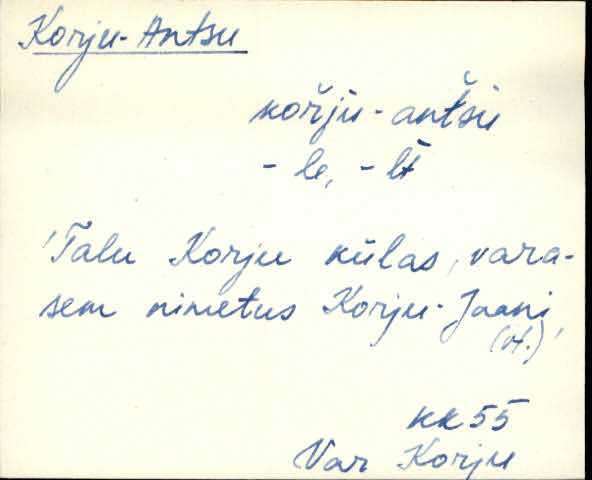 Korju-Antsu
kořju-antšu
-le, -lt
'Talu Korju külas, vara-
sem nimetus Korju-Jaani
(vt.)'
KK 55
Var Korju